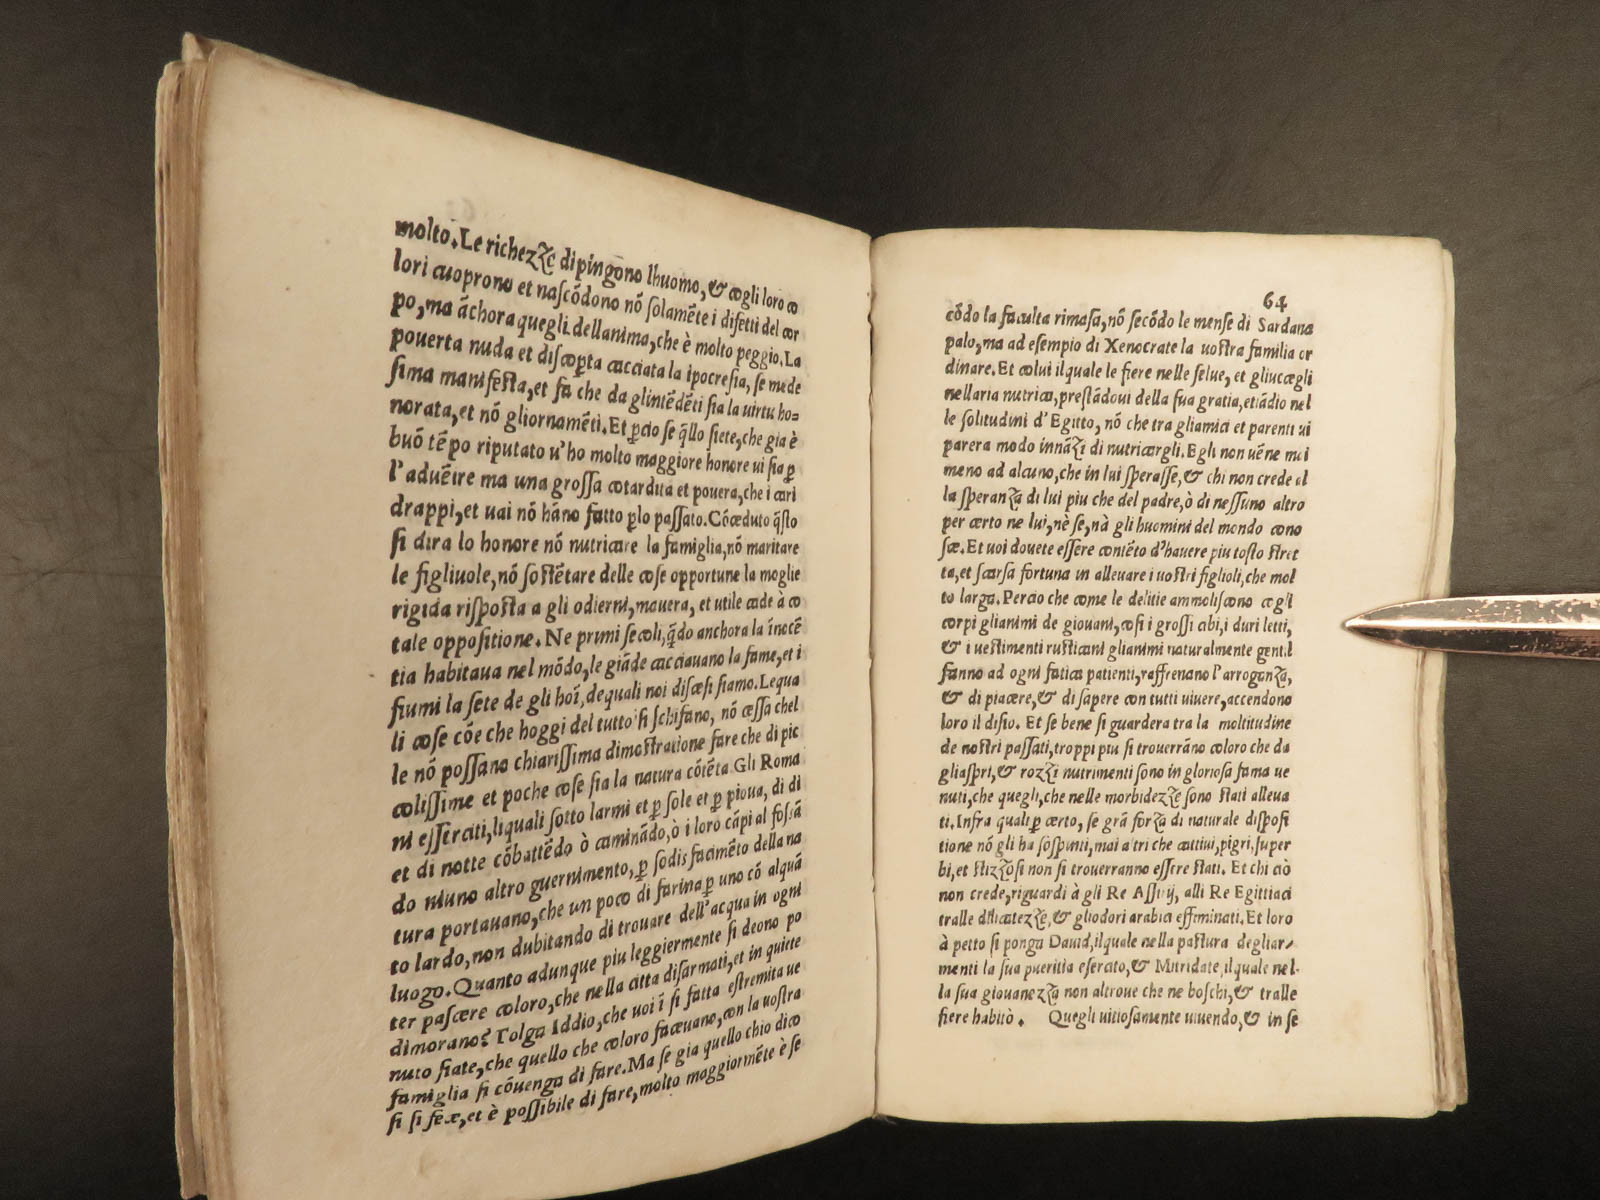 molto. Le richezze dipingono lhuomo, & cogli loro co
lori cuoprono et nascōdono nō solamēte i difetti del cor
po, ma āchora quegli dellanima, che è molto peggio. La
pouerta nuda et discoꝑta cacciata la ipocresia, se mede
sima manifesta, et fa che da glintēdēti sia la uirtu ho=
norata, et nō gliornamēti. Et ꝑcio se q̄llo siete, che gia è
buō tēpo riputato u'ho molto maggiore honore ui sia ꝑ
l'aduēire ma una grossa cotardita et pouera, che i cari
drappi, et uai nō hāno fatto ꝑlo passato. Cōceduto q̄sto
si dira lo honore nō nutricare la famiglia, nō maritare
le figliuole, nō sostētare delle cose opportune la moglie
rigida risposta a gli odierni, mauera, et utile cade à co
tale oppositione. Ne primi secoli, q̄do anchora la ïnocē
tia habitaua nel mōdo, le giāde cacciauano la fame, et i
fiumi la sete de gli hoī, de quali noi discesi siamo. Lequa
li cose cōe che hoggi del tutto si schifano, nō cessa chel
le nō possano chiarissima dimostratione fare che di pic
colissime et poche cose sia la natura cōtēta Gli Roma
ni esserciti, liquali sotto larmi et ꝑ sole et ꝑ pioua, di di
et di notte cōbattēdo ò camināndo, ò i loro cāpi al fossā
do niuno altro guernimento, ꝑ sodisfacimēto della na
tura portauano, che un poco di farina ꝑ uno cō alquā
to lardo, non dubitando di trouare dell'acqua in ogni
luogo. Quanto adunque piu leggiermente si deono po
ter pascere coloro, che nella citta disarmati, et in quiete
dimorano? Tolga Iddio, che uoi ī si fatta estremita ue
nuto siate, che quello che coloro faceuano, con la uostra
famiglia si cōuenga di fare. Ma se gia quello chio dico
si si fece, et è possibile di fare, molto maggiormēte è se
64
cōdo la faculta rimasa, nō secōdo le mense di Sardana
palo, ma ad esempio di Xenocrate la uostra familia or
dinare. Et colui ilquale le fiere nelle selue, et gliuccegli
nellaria nutrica, prestādoui della sua gratia, etiādio nel
le solitudini d'Egitto, nō che tra gliamici et parenti ui
parera modo innāzi di nutricargli. Egli non uēne mai
meno ad alcuno, che in lui sperasse, & chi non crede al
la speranza di lui piu che del padre, ò di nessuno altro
per certo ne lui, nè se, nà gli huomini del mondo cono
sce. Et uoi douete essere contēto d'hauere piu tosto stret
ta, et scarsa fortuna in alleuare i uostri figlioli, che mol
to larga. Percio che come le delitie ammoliscono cogli
corpi glianimi de giouani, cosi i grossi cibi, i duri letti,
& i uestimenti rusticani glianimi naturalmente gentil
fanno ad ogni fatica patienti, raffrenano l'arroganza,
& di piacere, & di sapere con tutti uiuere, accendono
loro il disio. Et se bene si guardera tra la moltitudine
de nostri passati, troppi piu si trouerrāno coloro che da
gliaspri, & rozzi nutrimenti sono in gloriosa fama ue
nuti, che quegli, che nelle morbidezze sono stati alleua
ti. Infra quali ꝑ certo, se grā forza di naturale disposi
tione nō gli ha sospinti, mai altri che cattiui, pigri, super
bi, et stizzosi non si trouerranno essere stati. Et chi ciò
non crede, riguardi à gli Re Assirij, alli Re Egittiaci
tralle dilicatezze, & gliodori arabici effiminati. Et loro
à petto si ponga Dauid, ilquale nella pastura degliar-
menti la sua pueritia esercitò, & Mitridate, il quale nel-
la sua giouanezza non altroue che ne boschi, & tralle
fiere habitò. Quegli uitiosamente uiuendo, & in se